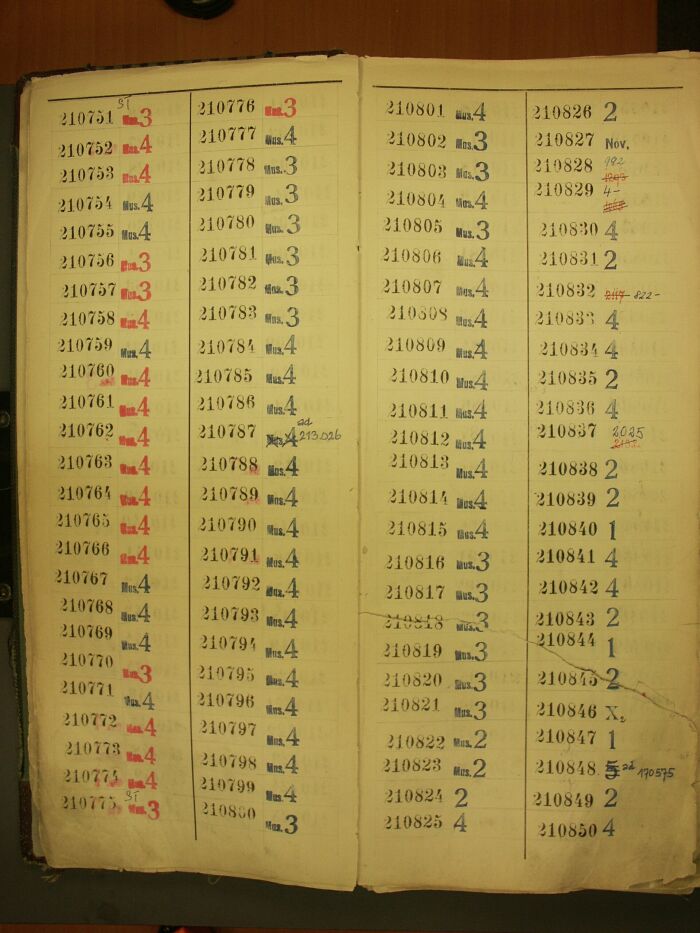 ST
210751 Mus.3
210752 Mus.4
210753 Mus.4
210754 Mus.4
210755 Mus.4
210756 Mus.3
210757 Mus.3
210758 Mus.4
210759 Mus.4
210760 Mus.4
210761 Mus.4
210762 Mus.4
210763 Mus.4
210764 Mus.4
210765 Mus.4
210766 Mus.4
210767 Mus.4
210768 Mus.4
210769 Mus.4
210770 Mus.3
210771 Mus.4
210772 Mus.4
210773 Mus.4
210774 Mus.4
210775 ST Mus.3
210776 Mus.3
210777 Mus.4
210778 Mus.3
210779 Mus.3
210780 Mus.3
210781 Mus.3
210782 Mus.3
210783 Mus.3
210784 Mus.4
210785 Mus.4
210786 Mus.4
210787 Mus.4 ad 213.026
210788 Mus.4
210789 Mus.4
210790 Mus.4
210791 Mus.4
210792 Mus.4
210793 Mus.4
210794 Mus.4
210795 Mus.4
210796 Mus.4
210797 Mus.4
210798 Mus.4
210799 Mus.4
210800 Mus.3
210801 Mus.4
210802 Mus.3
210803 Mus.3
210804 Mus.4
210805 Mus.3
210806 Mus.4
210807 Mus.4
210808 Mus.4
210809 Mus.4
210810 Mus.4
210811 Mus.4
210812 Mus.4
210813 Mus.4
210814 Mus.4
210815 Mus.4
210816 Mus.3
210817 Mus.3
210818 Mus.3
210819 Mus.3
210820 Mus.3
210821 Mus.3
210822 Mus.2
210823 Mus.2
210824 2
210825 4
210826 2
210827 Nov.
210828 992
210829 4-
210830 4
210831 2
210832 2117 822-
210833 4
210834 4
210835 2
210836 4
210837 2025
210838 2
210839 2
210840 1
210841 4
210842 4
210843 2
210844 1
210845 2
210846 X
210847 1
210848 5 ad 170575
210849 2
210850 4